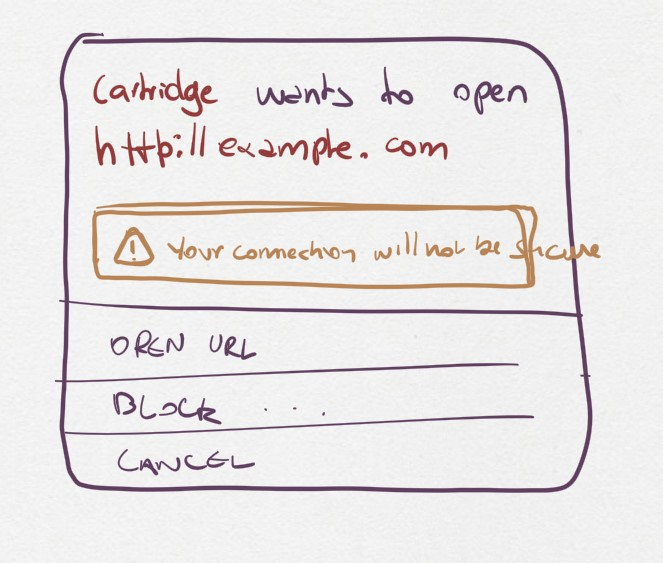 Cartridge wants to open
http://example.com
Your connection will not be secure
OPEN URL
BLOCK ...
CANCEL